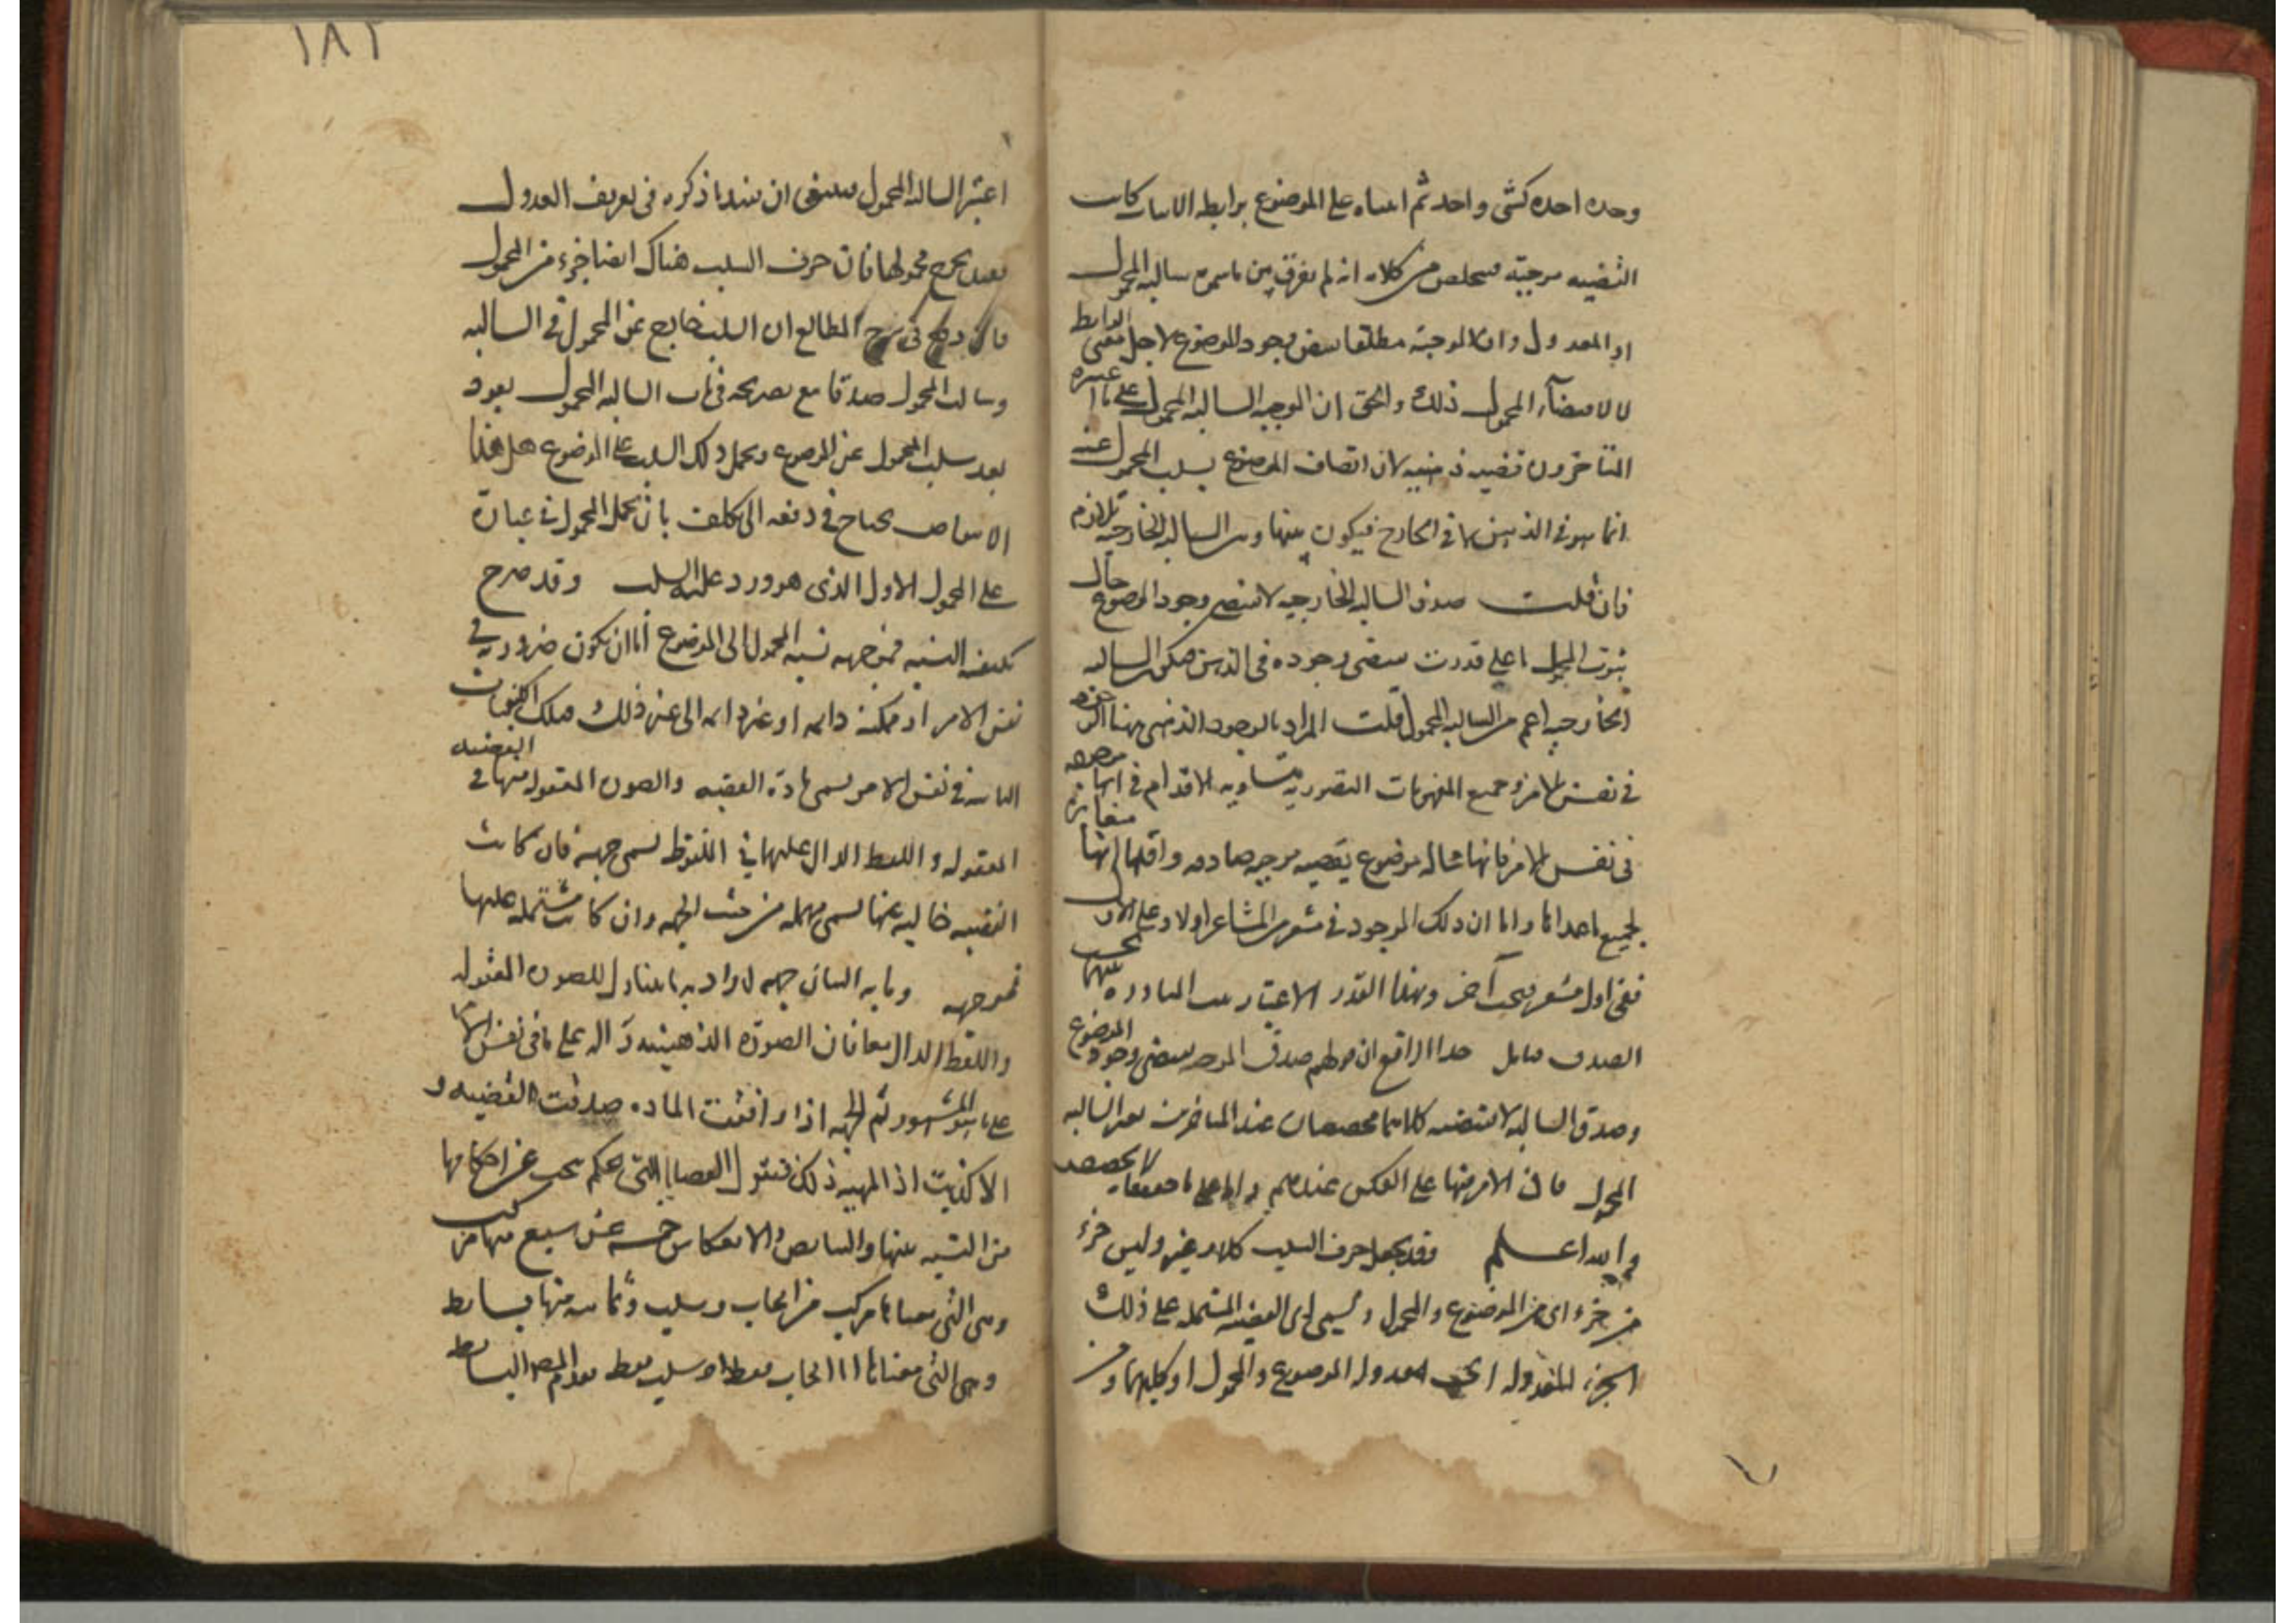 وحده احده كشى واحد ثم اثباته على الموضوع برابطه الاثبات كانت
القضيه موجبة فتخلص من كلامه انه لم يفرق بين ما سموه سالبه المحمول
او المعدول وان الموجبة مطلقا تقتضى وجود الموضوع لاجل معنى الرابط
لا لاقتضآء المحمول ذلك والحق ان الموجبه السالبه المحمول على ما اعتبره
المتاخرون قضيه ذهنيه لان اتصاف الموضوع بسلب المحمول عنه
انما هو فى الذهن لا فى الخارج فيكون بينها وبين السالبه الخارجيه تلازم
فان قلت صدق السالبه الخارجيه لا تقتضى وجود الموضوع حال
ثبوت المحمول سيقتضى وجوده فى الذهن فيكون السالبه
الخارجيه اعم من السالبه المحمول قلت المراد بالوجود الذهنى ههنا
فى نفس الامر وجميع المفهومات التصوريه متساويه الاقدام فى انها موجوده
فى نفس الامر فانها موضوع لقضيه موجبه صادقه واقلها انها مغايره
لجميع ما عداها واما ان ذلك الموجود فى مشعر من المشاعر اولا وعلى الاول
ففى اول مشعر فبحث آخر وبهذا القدر الاعتبار
الصدق هذا الواقع ان قولهم صدق الموجبه يقتضى وجود الموضوع
وصدق السالبه لا تقتضيه كلاهما مخصصان عند المتاخرين بغير السالبه
المحمول فان الامر فيها على العكس عندهم واما على ما حققنا فلا تخصيص
والله اعلم وقد يجعل حرف السلب وليس جزء
من جزء اى من الموضوع والمحمول ويسمى اى القضيه المشتمله على ذلك
الجزء المعدوله معدوله الموضوع والمحمول او كليهما ومن
١٨٢
اعتبر السالبه المحمول ينبغى ان يقيد ما ذكره فى تعريف العدول
بقيد يخرج محمولها فان حرف السلب هناك ايضا جزء من المحمول
فما وقع فى شرح المطالع ان السلب خارج عن المحمول فى السالبه
وسالبه المحمول صدقا مع تصريحه فى باب السالبه المحمول يعود
بعد سلب المحمول عن الموضوع ويحمل ذلك السلب على الموضوع هل هذا
الا تناقض يحتاج فى دفعه الى تكلف بان يحمل المحمول فى عبارة
على المحمول الاول الذى هو ورد عليه السلب وقد صرح
بكيفيه النسبه فموجهه نسبه المحمول الى الموضوع اما ان يكون ضروريه فى
نفس الامر او ممكنه دايمه او غير دايمه الى غير ذلك فتلك الكيفيات
الثابته فى نفس الامر يسمى مادة القضيه والصوره المعقوله منها فى القضيه
المعقوله واللفظ الدال عليها فى الملفوظ تسمى جهه فان كانت
القضيه خاليه عنها تسمى مهمله من حيث الجهه وان كانت مشتمله عليها
فموجهه وما به البيان جهه اراد بها ما يتناول للصوره المعقوله
واللفظ الدال معا فان الصورة الذهنيه دآله على ما فى نفس الامر
على ما هو المشهور ثم الجهه اذا وافقت الماده صدقت القضيه و
الا كذبت اذا تمهد ذلك فنقول القضايا التى نحكم بحث عن احكامها
من النسبه بينها والتناقض والانعكاس خمسه عشر سبع منها مركب
وهى التى معناها مركب من ايجاب وسلب وثمانيه منها بسايط
وهى التى معناها اما ايجاب فقط او سلب فقط البسايط